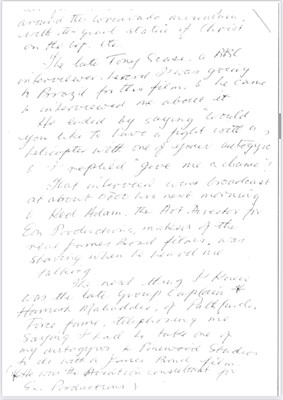 around the Corcovado mountain,
with the giant statue of Christ
on the top. etc
The late Tony Scase, a BBC
interviewer heard I was going
to Brazil for this film, & he came
& interviewed me about it
He ended by saying "would
you like to have a fight with a
helicopter with one of your autogyros
& I replied "give me a chance"!
That interview was broadcast
at about 0700 hrs next morning
& Ken Adam, the Art Director for
Eon Productions, makers of the
real James Bond films, was
shaving when he heard me
talking
The next thing I knew
was the late Group Captain *
Hamish Mahaddie, of Pathfinder
Force fame, telephoning me
Saying I had to take one of
my autogyros to Pinewood Studios
to do with a James Bond film
(* He was the Aviation consultant for
Eon Productions)